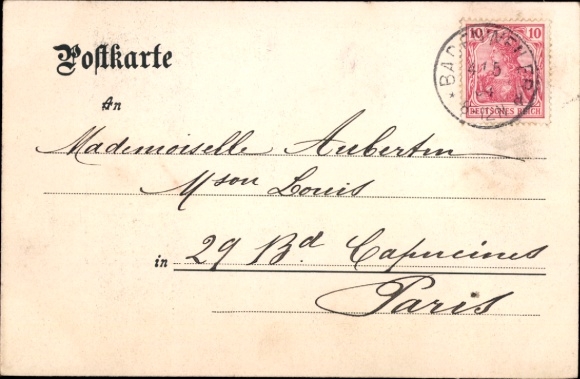 Postkarte
An
Mademoiselle Aubertin
Mson Louis
in 29 Bd Capucines
Paris
10 10
DEUTSCHES REICH
BADENWEILER